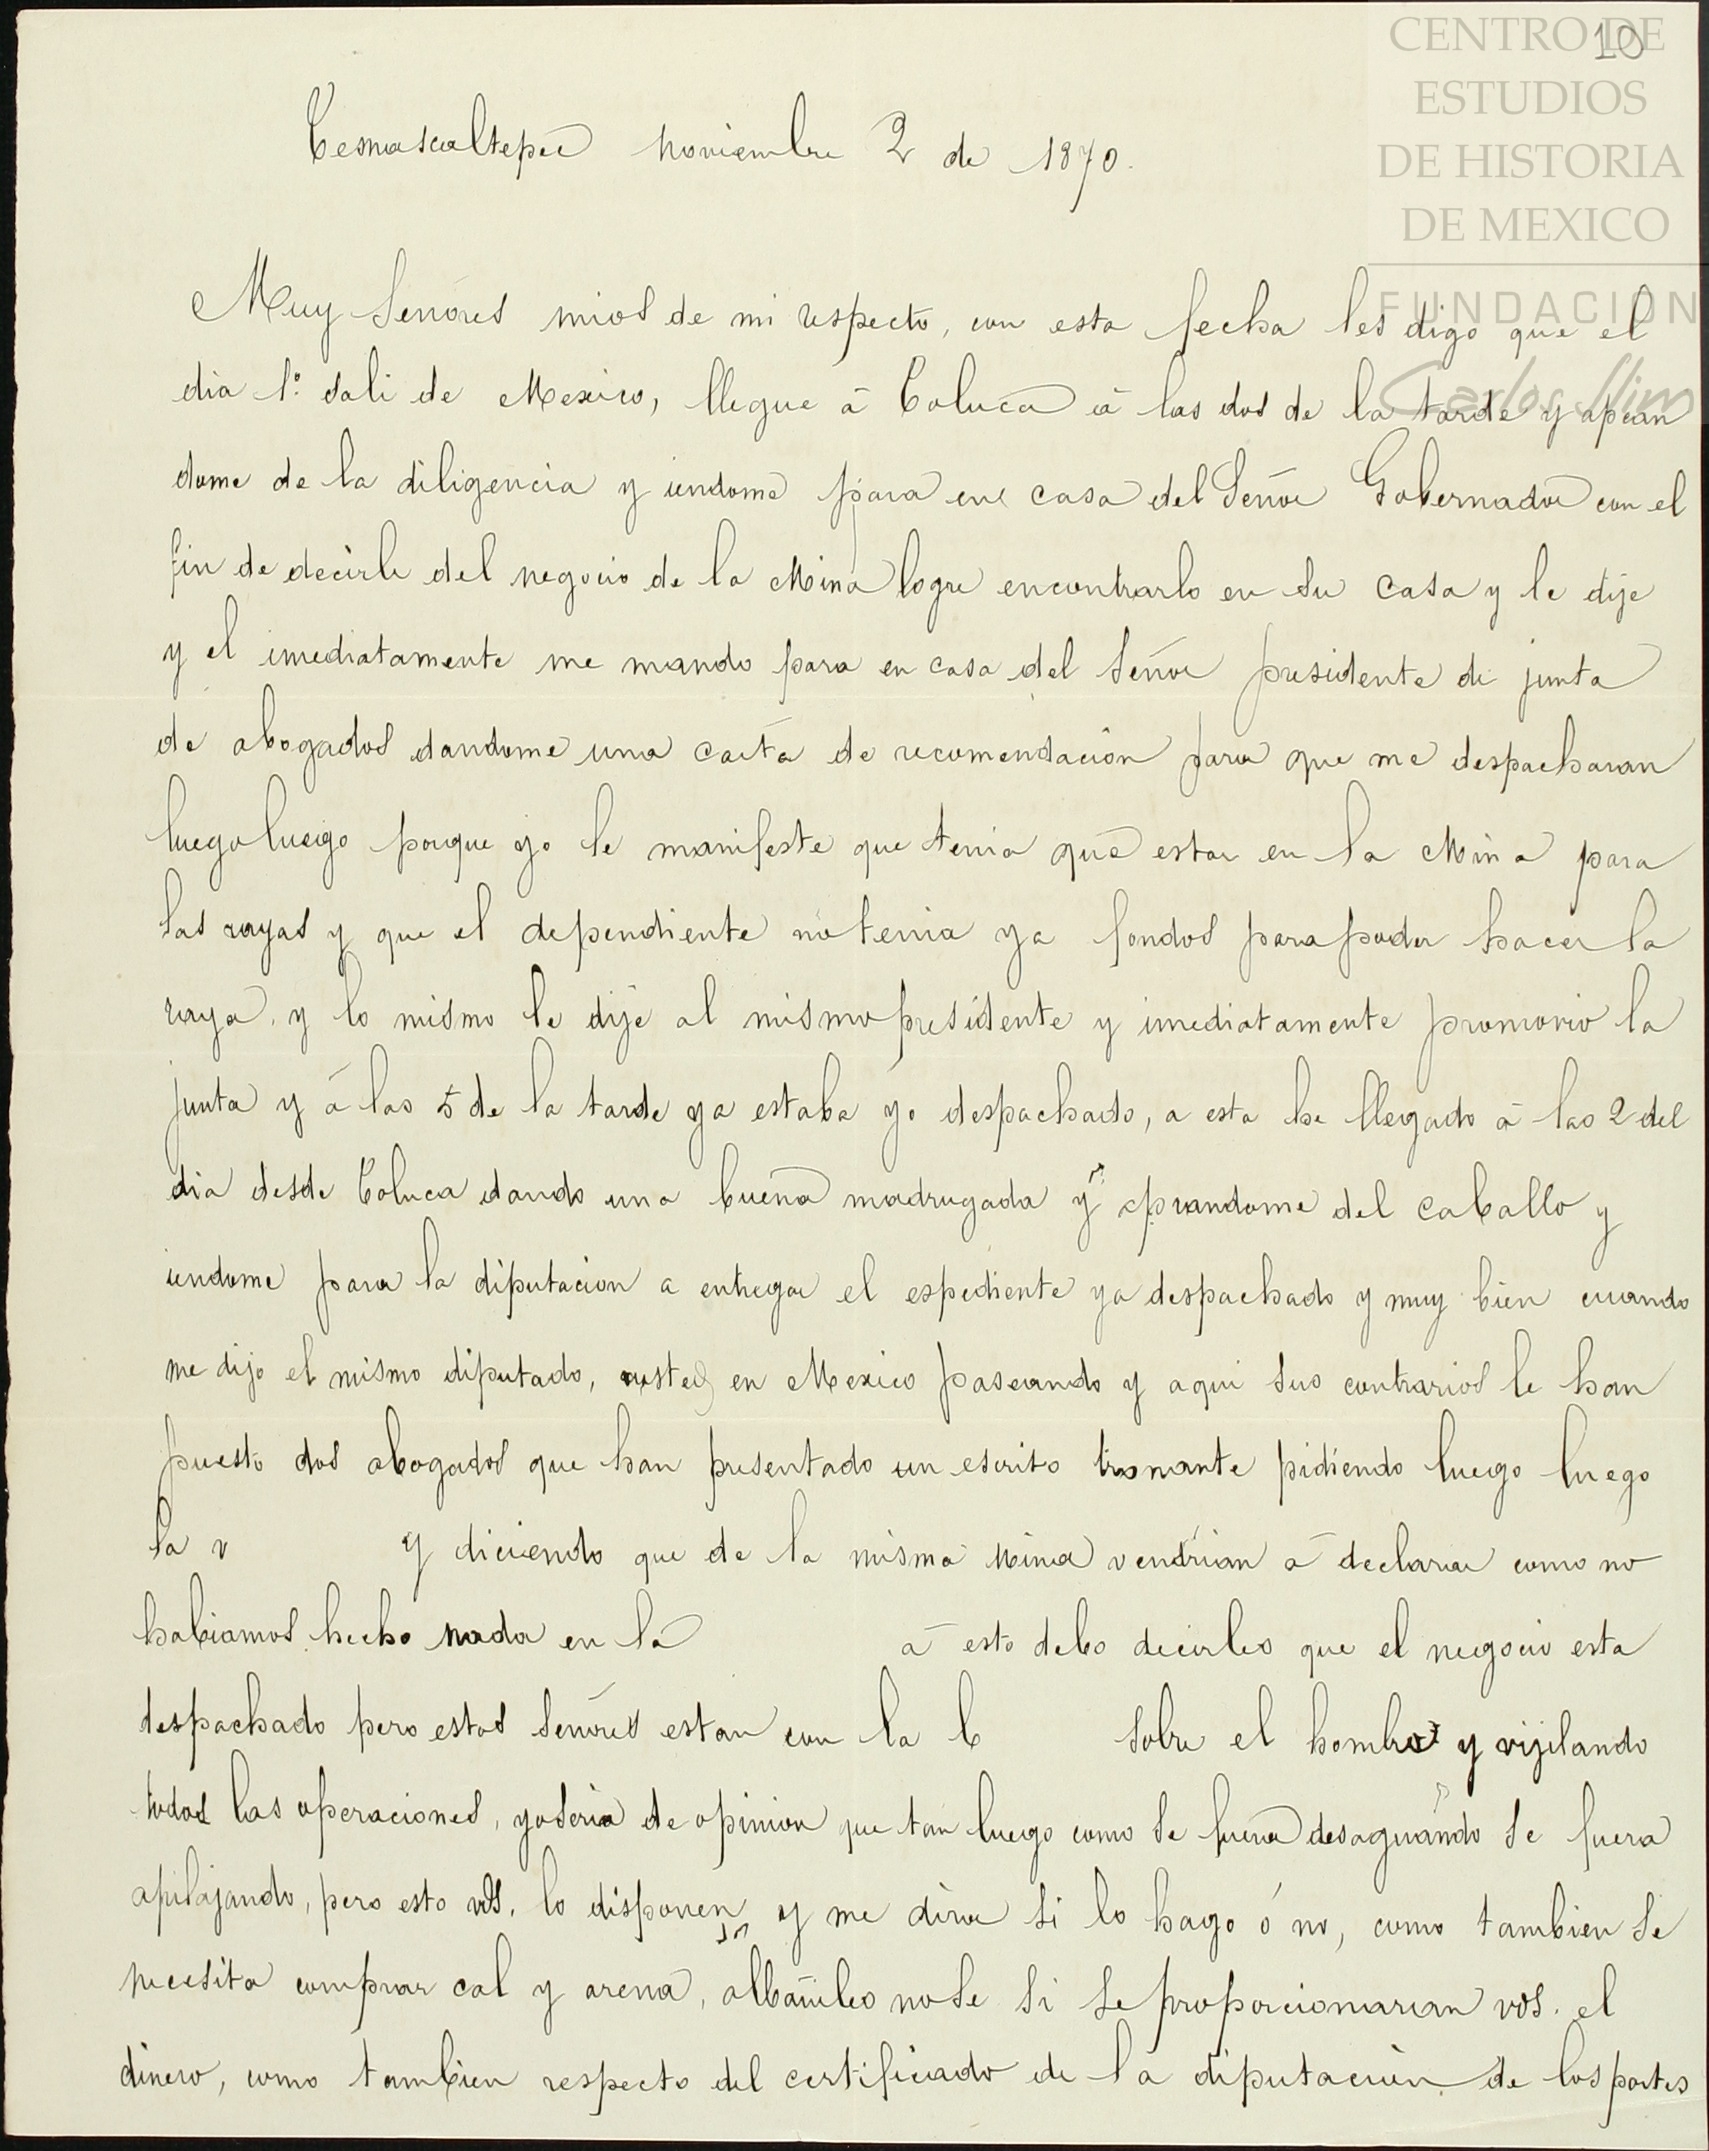 10
CENTRO DE
ESTUDIOS
DE HISTORIA
DE MEXICO
FUNDACION
Carlos Slim
Temascaltepec noviembre 2 de 1870.
Muy Señores mios de mi respecto, con esta fecha les digo que el
dia 1º. sali de Mexico, llegue á Toluca á las dos de la tarde y apean
dome de la diligencia y iendome para en casa del Señor Gobernador con el
fin de decirle del negocio de la Mina logre encontrarlo en su casa y le dije
y el imediatamente me mando para en casa del Señor presidente de junta
de abogados dandome una carta de recomendacion para que me despacharan
luego luego porque yo le manifeste que tenia que estar en la Mina para
las rayas y que el dependiente no tenia ya fondos para poder hacer la
raya. y lo mismo le dije al mismo presidente y imediatamente promovio la
junta y á las 5 de la tarde ya estaba yo despachado, a esta he llegado á las 2 del
dia desde Toluca dando una buena madrugada y apeandome del caballo y
iendome para la diputacion a entregar el espediente ya despachado y muy bien cuando
me dijo el mismo diputado, usted en Mexico paseando y aqui sus contrarios le han
puesto dos abogados que han presentado un escrito tronante pidiendo luego luego
la v y diciendo que de la misma Mina vendrian á declarar como no
habiamos hecho nada en la á esto debo decirles que el negocio esta
despachado pero estos señores estan con la b sobre el hombro y vijilando
todas las operaciones, yo seria de opinion que tan luego como se fuera desaguando se fuera
apilajando, pero esto vds. lo disponen y me diran si lo hago ó no, como tambien se
necesita comprar cal y arena, albañiles no se si se proporcionarian vds. el
dinero, como tambien respecto del certificado de la diputacion de los partes